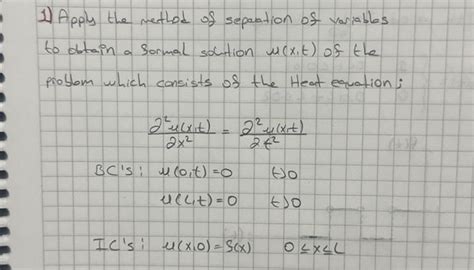 1) Apply the method of separation of variables
to obtain a formal solution u(x,t) of the
problem which consists of the Heat equation;
∂²u(x,t)/∂x² = ∂²u(x,t)/∂t²
BC's: u(0,t)=0 t>0
u(L,t)=0 t>0
IC's: u(x,0)=f(x) 0≤x≤L